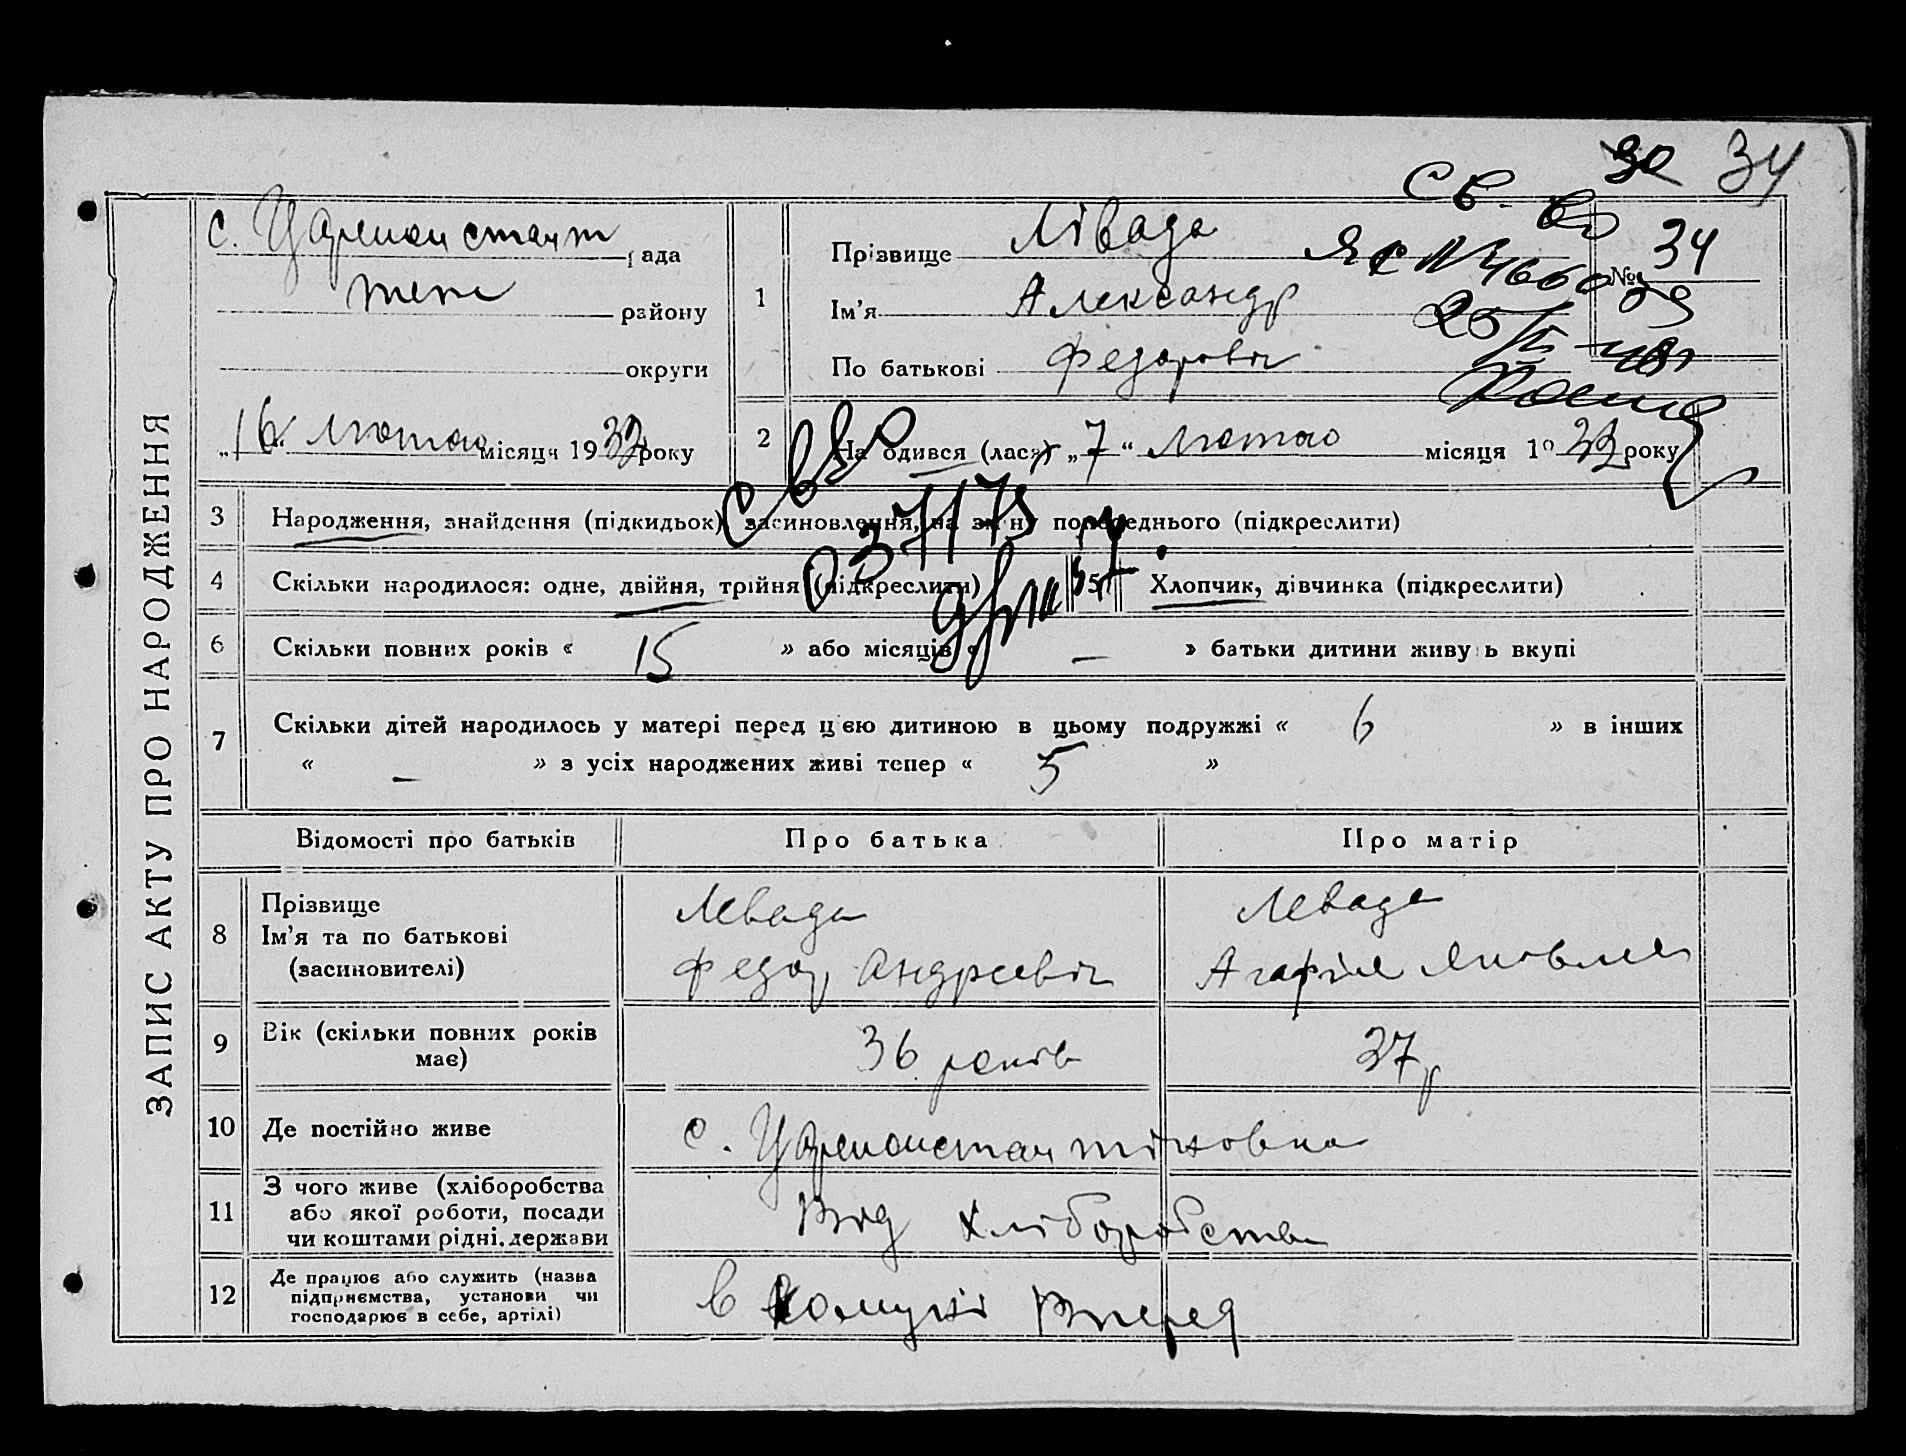 30 34
с. Цареконстант рада
теж району
округи
„16“ Лютого місяця 1932 року
ЗАПИС АКТУ ПРО НАРОДЖЕННЯ
1
Прізвище Лівада
Ім'я Александр
По батькові Федоровіч
№ 34
2 Народився (лася) „7“ Лютого місяця 1932 року
3 Народження, знайдення (підкидьок) засиновлення, на зміну попереднього (підкреслити)
4 Скільки народилося: одне, двійня, трійня (підкреслити) 5 Хлопчик, дівчинка (підкреслити)
6 Скільки повних років « 15 » або місяців « — » батьки дитини живуть вкупі
7 Скільки дітей народилось у матері перед цією дитиною в цьому подружжі « 6 » в інших
« — » з усіх народжених живі тепер « 5 »
Відомості про батьків Про батька Про матір
8 Прізвище
Ім'я та по батькові
(засиновителі)
Левада
Федор Андреевіч
Левада
Агафія Яковлев
9 Вік (скільки повних років має)
36 років 37 р
10 Де постійно живе с. Цареконстантіновка
11 З чого живе (хліборобства
або якої роботи, посади
чи коштами рідні, держави
Від хліборобства
12 Де працює або служить (назва
підприємства, установи чи
господарює в себе, артілі)
в Комуні Вперед